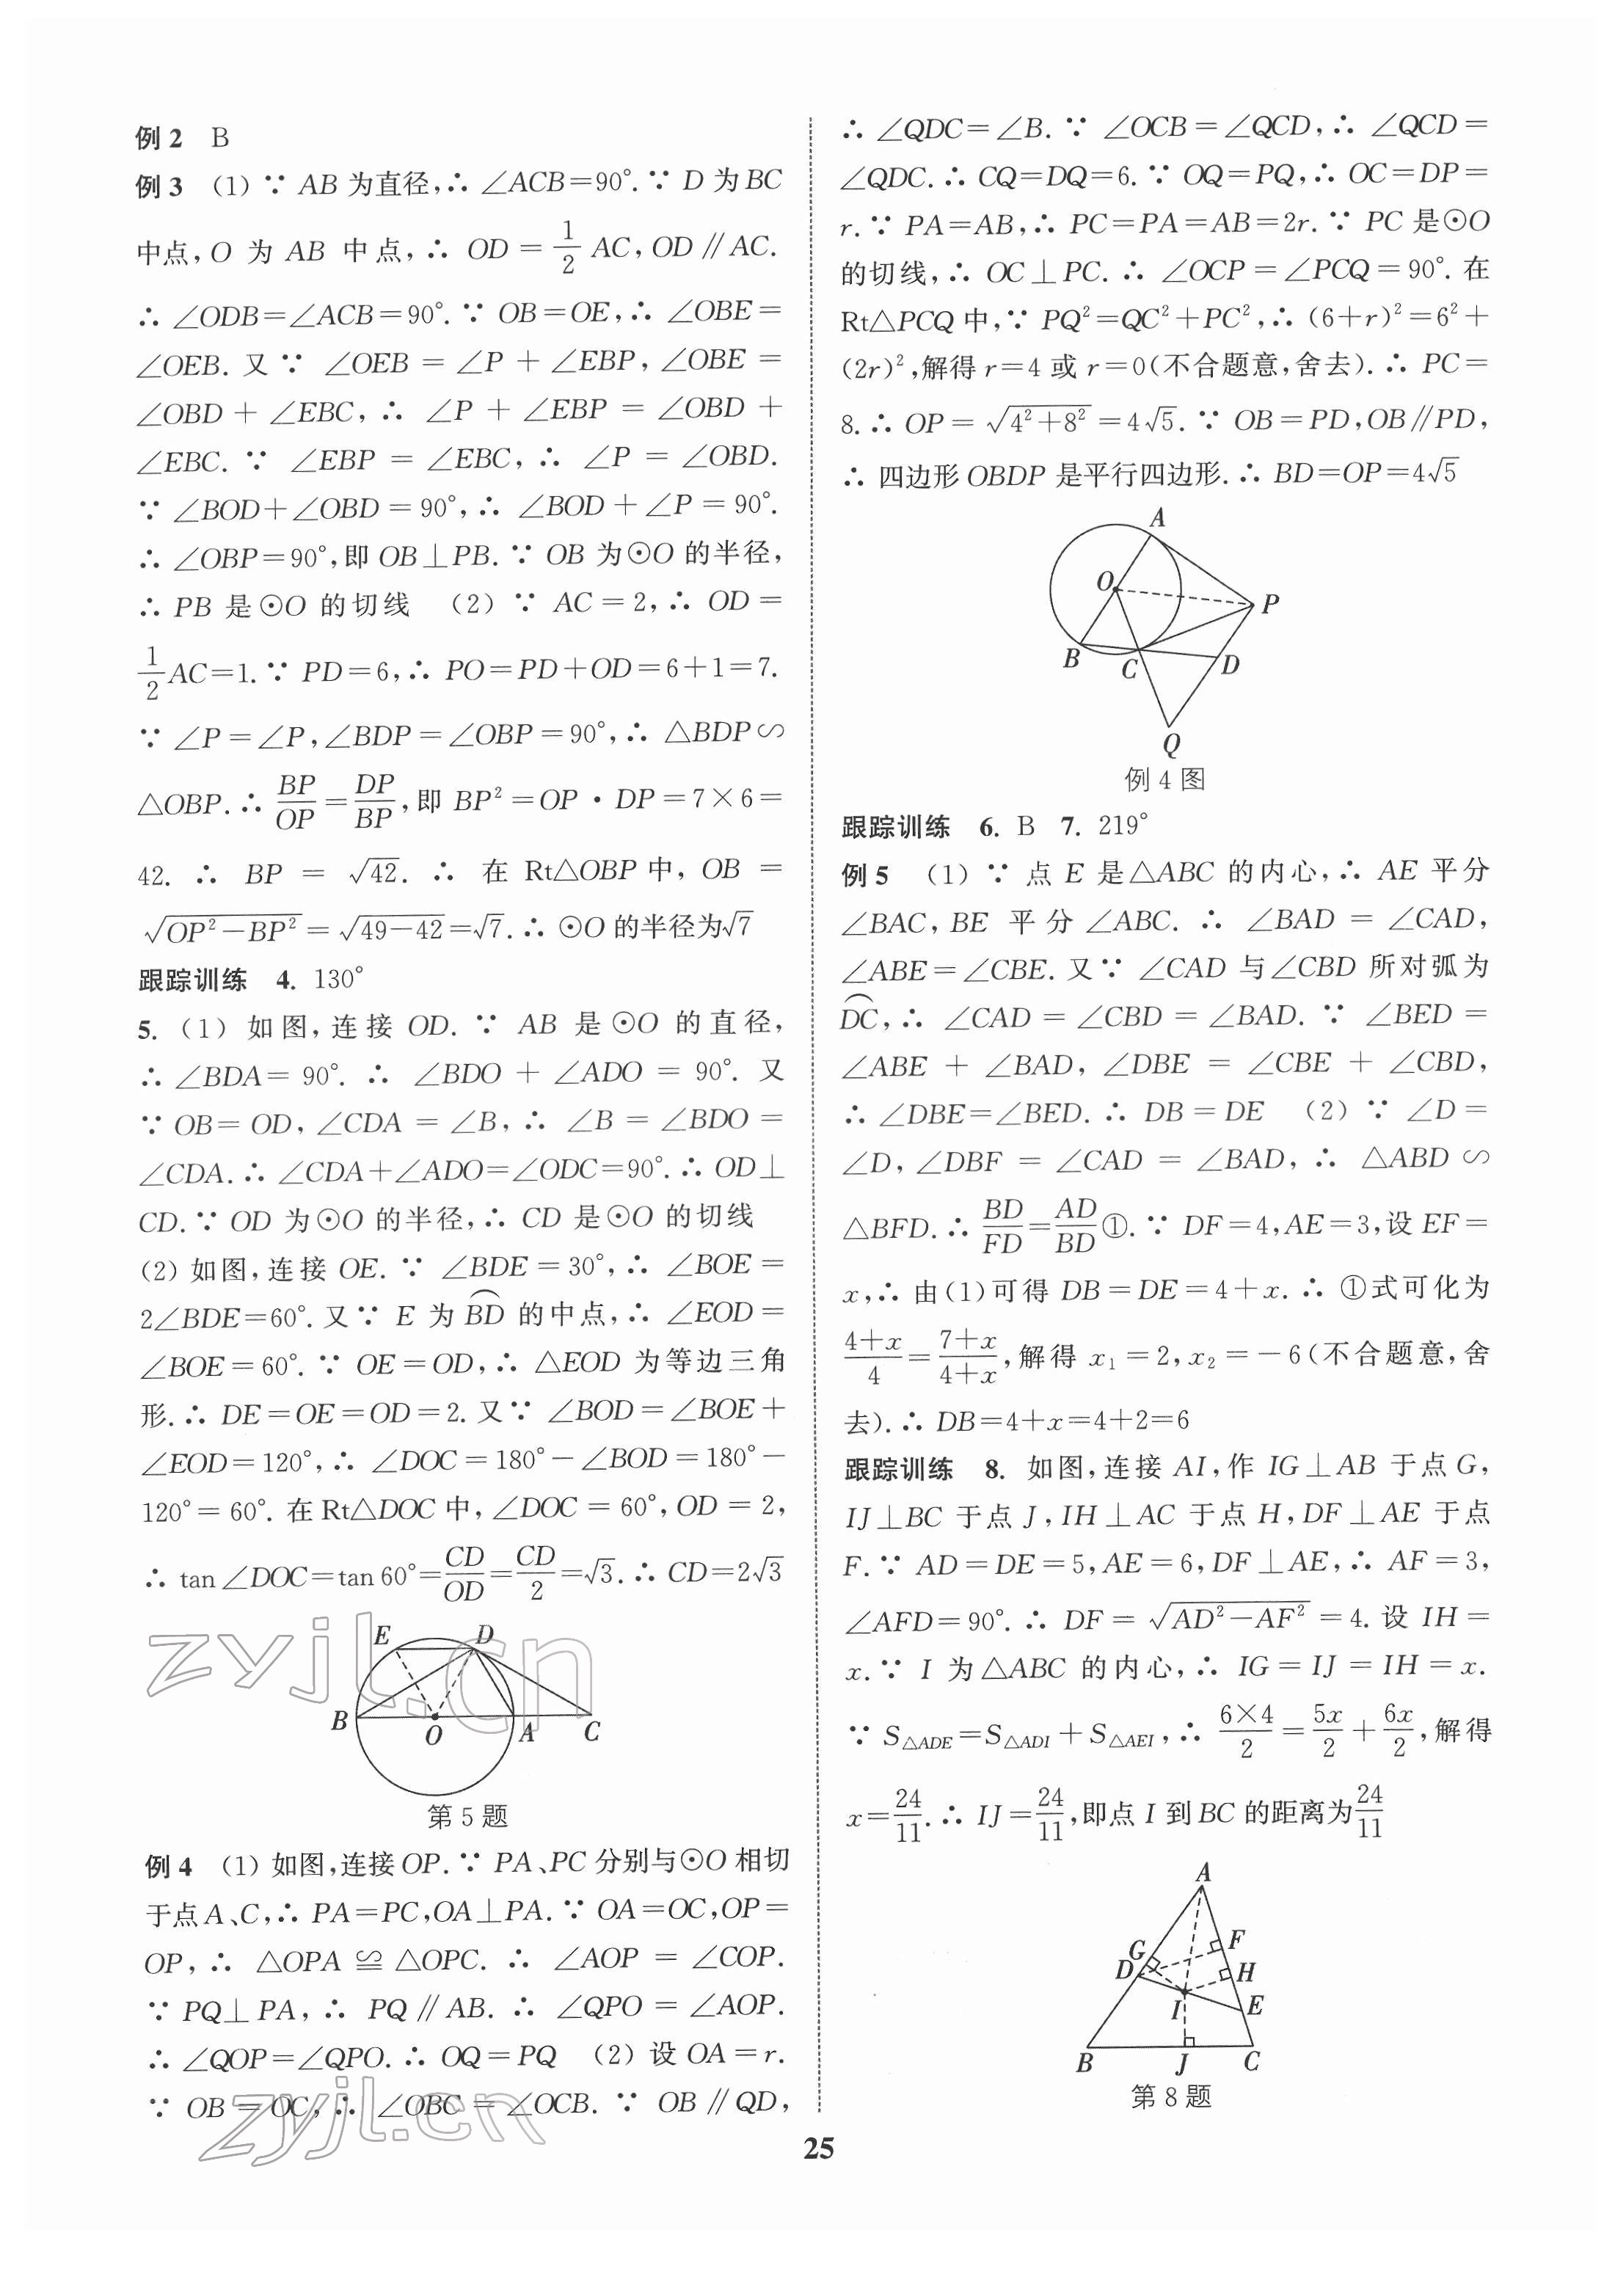 例2 B
例3 (1) ∵ AB为直径,∴ ∠ACB=90°.∵ D为BC
中点,O 为 AB 中点,∴ OD=1/2 AC,OD∥AC.
∴ ∠ODB=∠ACB=90°.∵ OB=OE,∴ ∠OBE=
∠OEB. 又∵ ∠OEB=∠P+∠EBP,∠OBE=
∠OBD+∠EBC,∴ ∠P+∠EBP=∠OBD+
∠EBC.∵ ∠EBP=∠EBC,∴ ∠P=∠OBD.
∵ ∠BOD+∠OBD=90°,∴ ∠BOD+∠P=90°.
∴ ∠OBP=90°,即OB⊥PB.∵ OB为⊙O的半径,
∴ PB是⊙O的切线 (2) ∵ AC=2,∴ OD=
1/2 AC=1.∵ PD=6,∴ PO=PD+OD=6+1=7.
∵ ∠P=∠P,∠BDP=∠OBP=90°,∴ △BDP∽
△OBP.∴ BP/OP=DP/BP,即BP²=OP·DP=7×6=
42.∴ BP=√42.∴ 在Rt△OBP中,OB=
√(OP²-BP²)=√(49-42)=√7.∴ ⊙O的半径为√7
跟踪训练 4. 130°
5. (1) 如图,连接OD.∵ AB是⊙O的直径,
∴ ∠BDA=90°.∴ ∠BDO+∠ADO=90°. 又
∵ OB=OD,∠CDA=∠B,∴ ∠B=∠BDO=
∠CDA.∴ ∠CDA+∠ADO=∠ODC=90°.∴ OD⊥
CD.∵ OD为⊙O的半径,∴ CD是⊙O的切线
(2) 如图,连接OE.∵ ∠BDE=30°,∴ ∠BOE=
2∠BDE=60°.又∵ E为⌒BD的中点,∴ ∠EOD=
∠BOE=60°.∵ OE=OD,∴ △EOD为等边三角
形.∴ DE=OE=OD=2.又∵ ∠BOD=∠BOE+
∠EOD=120°,∴ ∠DOC=180°-∠BOD=180°-
120°=60°.在Rt△DOC中,∠DOC=60°,OD=2,
∴ tan∠DOC=tan60°=CD/OD=CD/2=√3.∴ CD=2√3
E
D
B
O
A
C
第5题
zyjl.cn
例4 (1) 如图,连接OP.∵ PA、PC分别与⊙O相切
于点A、C,∴ PA=PC,OA⊥PA.∵ OA=OC,OP=
OP,∴ △OPA≌△OPC.∴ ∠AOP=∠COP.
∵ PQ⊥PA,∴ PQ∥AB.∴ ∠QPO=∠AOP.
∴ ∠QOP=∠QPO.∴ OQ=PQ (2) 设OA=r.
∵ OB=OC,∴ ∠OBC=∠OCB.∵ OB∥QD,
zyjl.cn
∴ ∠QDC=∠B.∵ ∠OCB=∠QCD,∴ ∠QCD=
∠QDC.∴ CQ=DQ=6.∵ OQ=PQ,∴ OC=DP=
r.∵ PA=AB,∴ PC=PA=AB=2r.∵ PC是⊙O
的切线,∴ OC⊥PC.∴ ∠OCP=∠PCQ=90°.在
Rt△PCQ中,∵ PQ²=QC²+PC²,∴ (6+r)²=6²+
(2r)²,解得r=4或r=0(不合题意,舍去).∴ PC=
8.∴ OP=√(4²+8²)=4√5.∵ OB=PD,OB∥PD,
∴ 四边形OBDP是平行四边形.∴ BD=OP=4√5
A
O
P
B
C
D
Q
例4图
跟踪训练 6. B 7. 219°
例5 (1) ∵ 点E是△ABC的内心,∴ AE平分
∠BAC,BE平分∠ABC.∴ ∠BAD=∠CAD,
∠ABE=∠CBE.又∵ ∠CAD与∠CBD所对弧为
⌒DC,∴ ∠CAD=∠CBD=∠BAD.∵ ∠BED=
∠ABE+∠BAD,∠DBE=∠CBE+∠CBD,
∴ ∠DBE=∠BED.∴ DB=DE (2) ∵ ∠D=
∠D,∠DBF=∠CAD=∠BAD,∴ △ABD∽
△BFD.∴ BD/FD=AD/BD①.∵ DF=4,AE=3,设EF=
x,∴ 由(1)可得DB=DE=4+x.∴ ①式可化为
(4+x)/4=(7+x)/(4+x),解得x₁=2,x₂=-6(不合题意,舍
去).∴ DB=4+x=4+2=6
跟踪训练 8. 如图,连接AI,作IG⊥AB于点G,
IJ⊥BC于点J,IH⊥AC于点H,DF⊥AE于点
F.∵ AD=DE=5,AE=6,DF⊥AE,∴ AF=3,
∠AFD=90°.∴ DF=√(AD²-AF²)=4.设IH=
x.∵ I为△ABC的内心,∴ IG=IJ=IH=x.
∵ S△ADE=S△ADI+S△AEI,∴ (6×4)/2=5x/2+6x/2,解得
x=24/11.∴ IJ=24/11,即点I到BC的距离为24/11
A
G
F
D
H
I
E
B
J
C
第8题
25